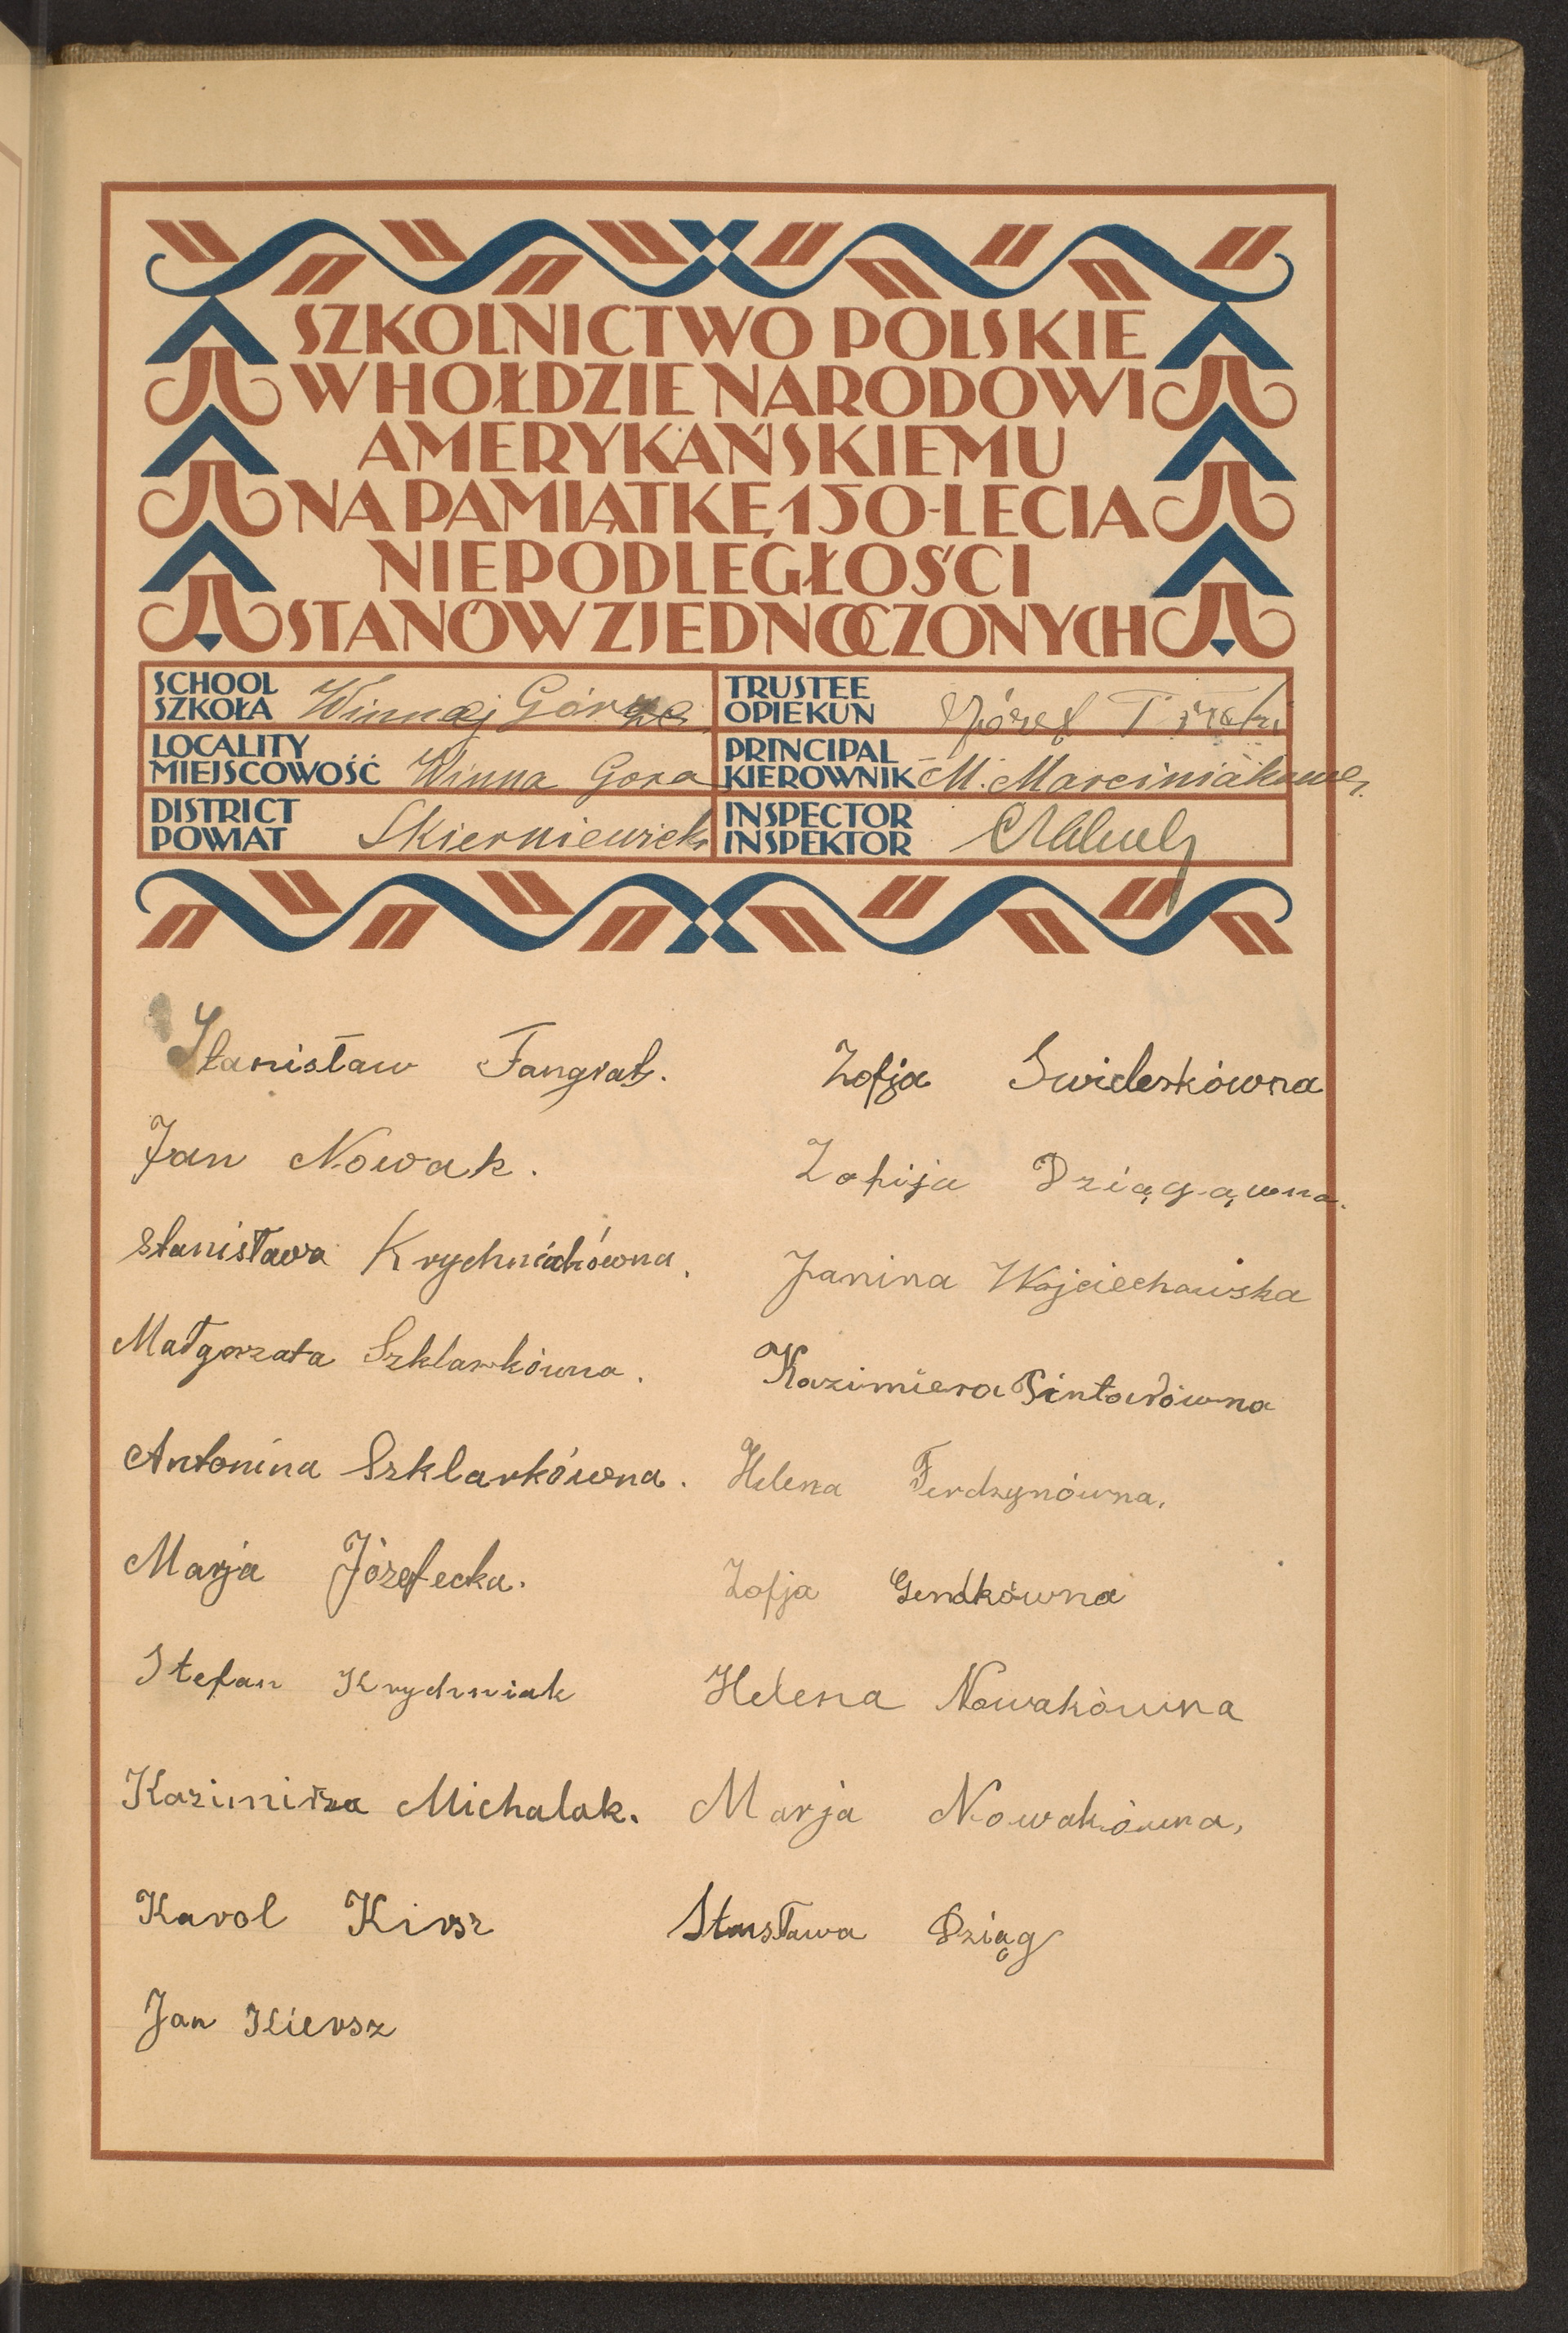 SZKOLNICTWO POLSKIE
W HOŁDZIE NARODOWI
AMERYKAŃSKIEMU
NA PAMIĄTKĘ 150-LECIA
NIEPODLEGŁOŚCI
STANÓW ZJEDNOCZONYCH
SCHOOL
SZKOŁA Winnej Górze
TRUSTEE
OPIEKUN Józef
LOCALITY
MIEJSCOWOŚĆ Winna Gora
PRINCIPAL
KIEROWNIK M. Marciniakowa
DISTRICT
POWIAT Skierniewicki
INSPECTOR
INSPEKTOR
Stanisław Fangrat.
Jan Nowak.
Stanisława Krychniakówna.
Małgorzata Szklarkówna.
Antonina Szklarkówna.
Marja Józefecka.
Stefan Krychniak
Kazimirza Michalak.
Karol Kirsz
Jan Kiersz
Zofja Swiderkówna
Zofija Dziągąwna.
Janina Wojciechowska
Kazimiera Pintarówna
Helena Ferdzynówna.
Zofja Gendkówna
Helena Nowakówna
Marja Nowakówna,
Stasława Dziąg